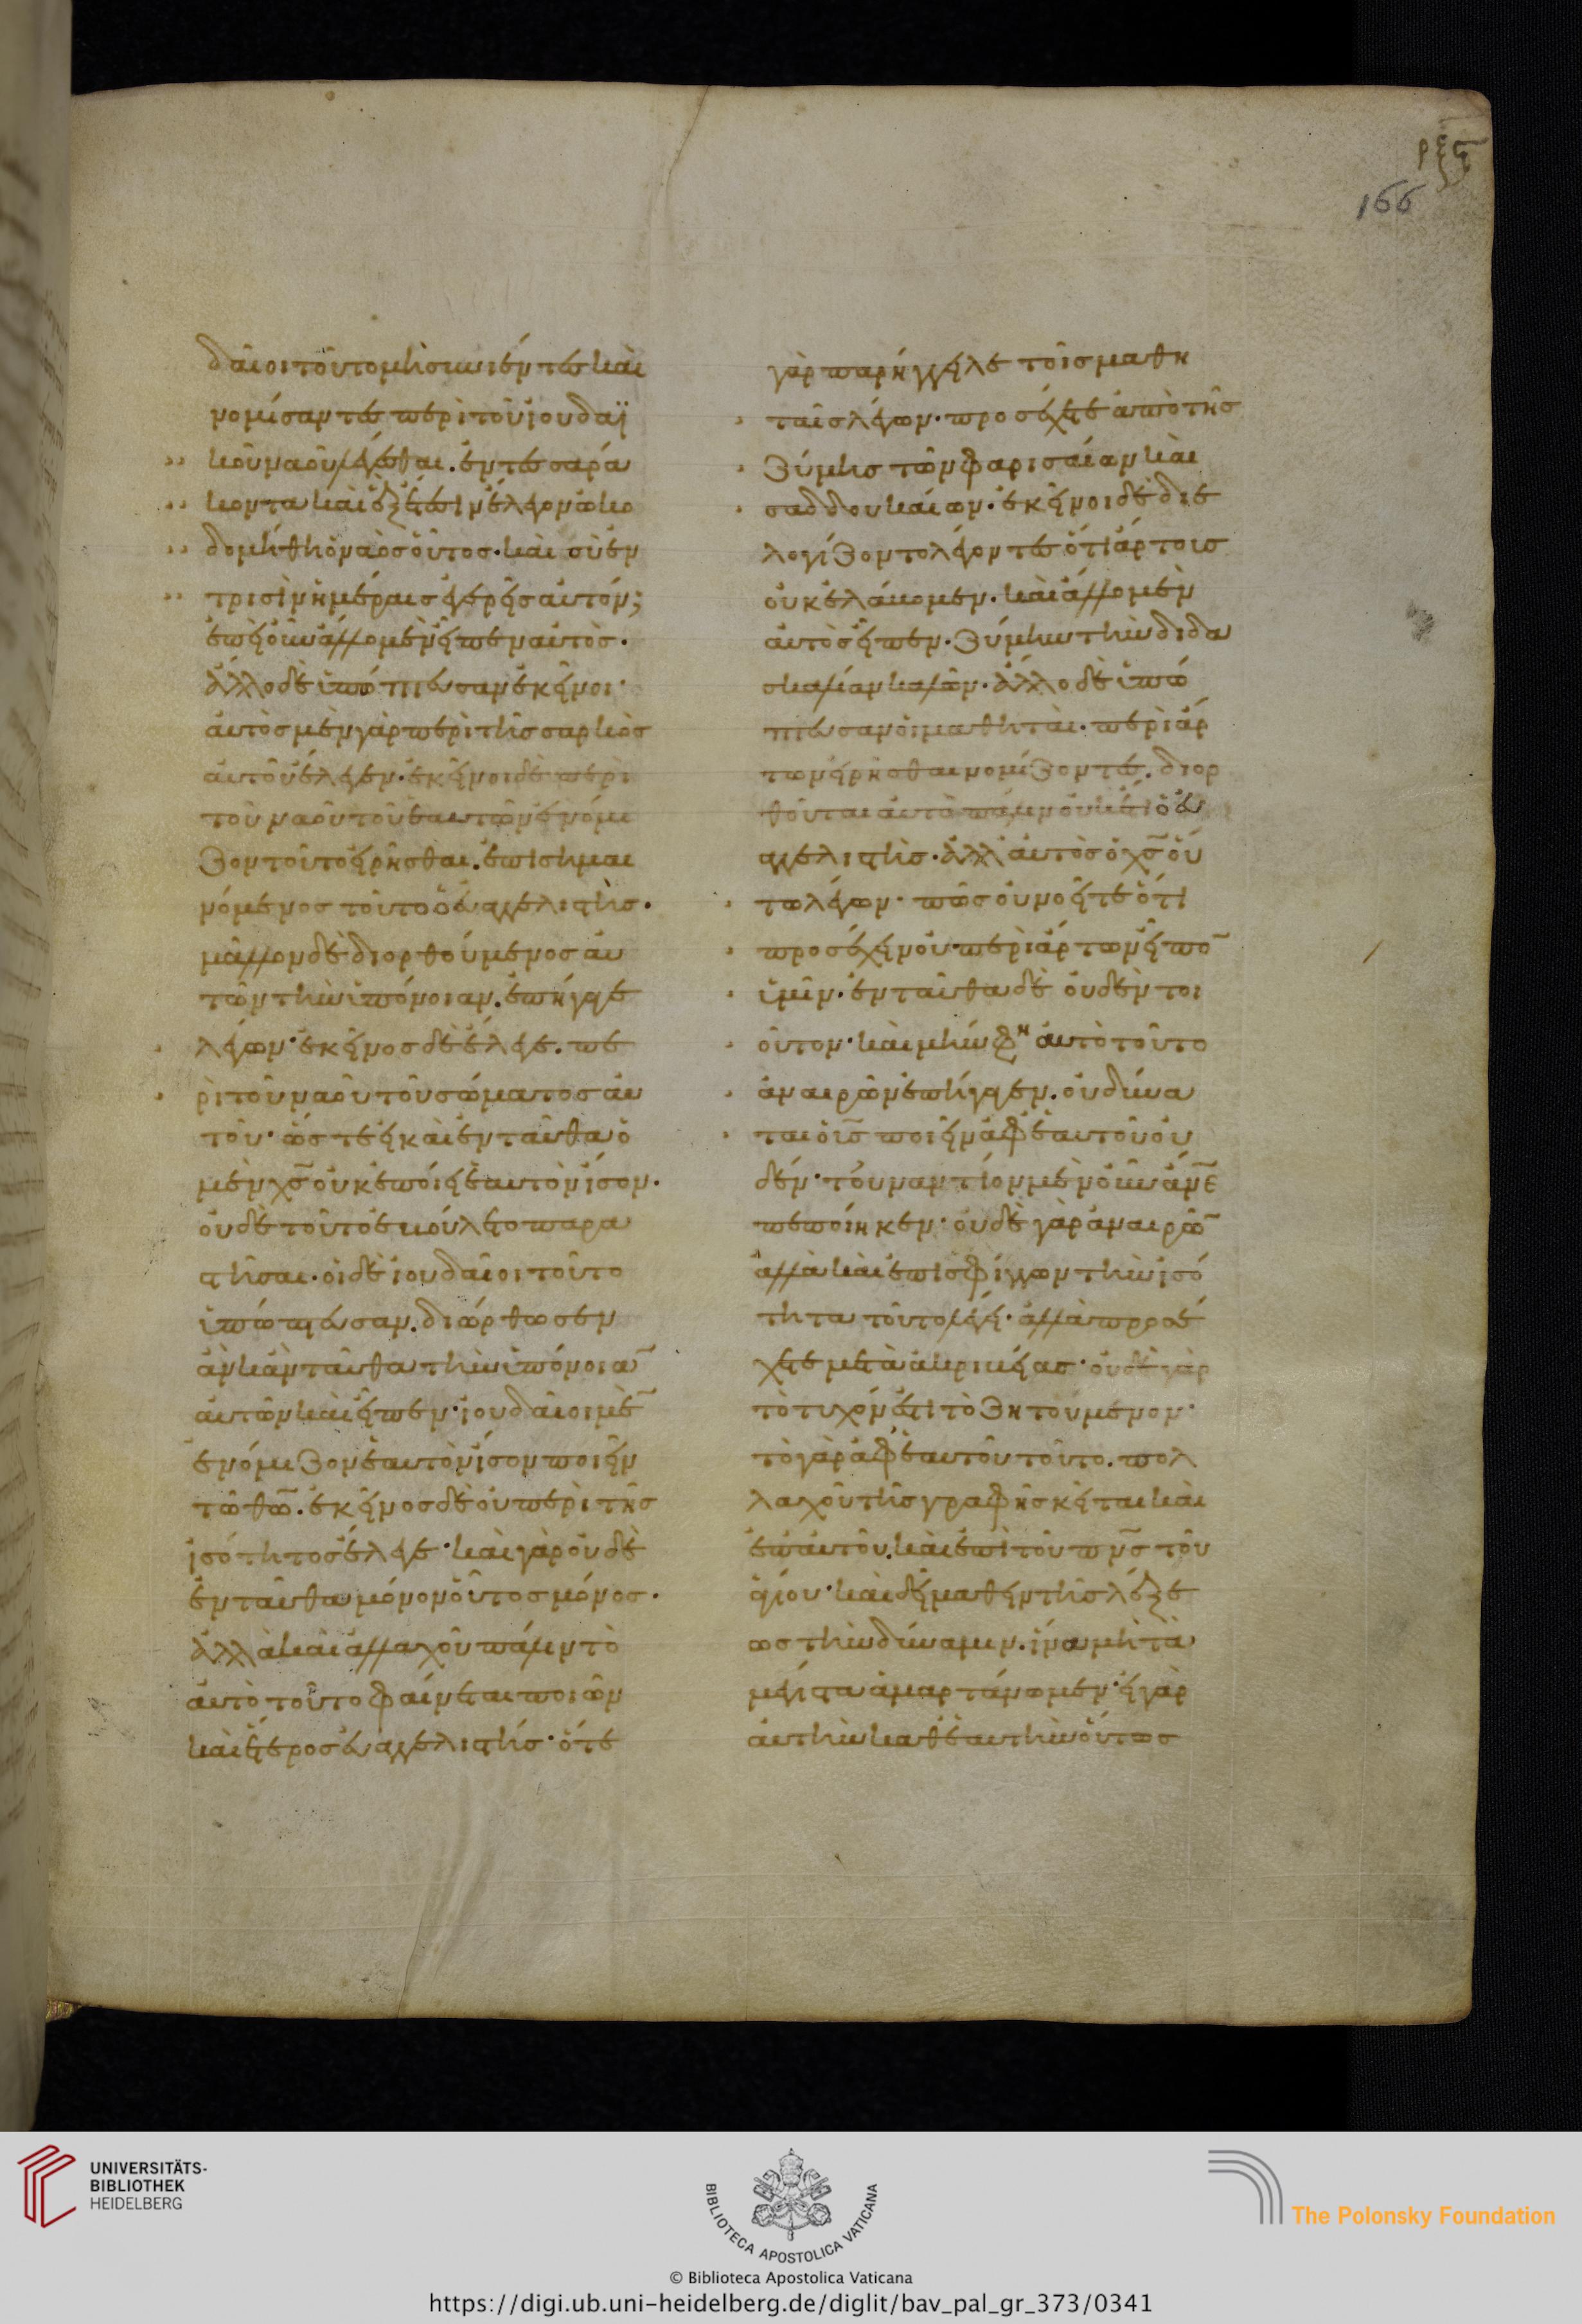 ρξϛ
166
δαῖοι τοῦτο μὴ συνιέντες καὶ
νομίσαντες περὶ τοῦ ἰουδαϊ
κοῦ ναοῦ λέγεσθαι. ἐν τεσσαρά
κοντα καὶ ἓξ ἔτεσιν ἔλεγον ᾠκο
δομήθη ὁ ναὸς οὗτος· καὶ σὺ ἐν
τρισὶν ἡμέραις ἐγερεῖς αὐτόν;
ἐπεὶ οὖν ἄλλο μὲν εἶπεν αὐτὸς·
ἄλλο δὲ ὑπώπτευσαν ἐκεῖνοι·
αὐτὸς μὲν γὰρ περὶ τῆς σαρκὸς
αὐτοῦ ἔλεγεν· ἐκεῖνοι δὲ περὶ
τοῦ ναοῦ τοῦ ἑαυτῶν ἐνόμι
ζον τοῦτο εἰρῆσθαι. ἐπισημαι
νόμενος τοῦτο ὁ εὐαγγελιστὴς·
μᾶλλον δὲ διορθούμενος αὐ
τῶν τὴν ὑπόνοιαν. ἐπήγαγε
λέγων· ἐκεῖνος δὲ ἔλεγε. πε
ρὶ τοῦ ναοῦ τοῦ σώματος αὐ
τοῦ· ὥστε εἰ καὶ ἐνταῦθα ὁ
μὲν χς̅ οὐκ ἐποίει ἑαυτὸν ἴσον·
οὐδὲ τοῦτο ἐβούλετο παρα
στῆσαι· οἱ δὲ ἰουδαῖοι τοῦτο
ὑπώπτευσαν. διώρθωσεν
ἂν κἀνταῦθα τὴν ὑπόνοια̅
αὐτῶν καὶ εἶπεν· ἰουδαῖοι μὲ̅
ἐνόμιζον ἑαυτὸν ἴσον ποιεῖν
τῶ θω̅. ἐκεῖνος δὲ οὐ περὶ τῆς
ἰσότητος ἔλεγε· καὶ γὰρ οὐδὲ
ἐνταῦθα μόνον οὗτος μόνος·
ἀλλὰ καὶ ἀλλαχοῦ πάλιν τὸ
αὐτὸ τοῦτο φαίνεται ποιῶν
καὶ ἕτερος εὐαγγελιστής· ὅτε
γὰρ παρήγγειλε τοῖς μαθη
ταῖς λέγων· προσέχετε ἀπὸ τῆς
ζύμης τῶν φαρισαίων καὶ
σαδδουκαίων· ἐκεῖνοι δὲ διε
λογίζοντο λέγοντες ὅτι ἄρτους
οὐκ ἐλάβομεν. καὶ ἄλλο μὲν
αὐτὸς εἶπεν. ζύμην τὴν διδα
σκαλίαν καλῶν· ἄλλο δὲ ὑπώ
πτευσαν οἱ μαθηταὶ· περὶ ἄρ
των εἰρῆσθαι νομίζοντες. διορ
θοῦται αὐτὸ πάλιν οὐκέτι ὁ εὐ
αγγελιστὴς· ἀλλ' αὐτὸς ὁ χς̅ οὕ
τω λέγων· πῶς οὐ νοεῖτε ὅτι
προσέχειν οὐ περὶ ἄρτων εἶπο̅
ὑμῖν· ἐνταῦθα δὲ οὐδὲν τοι
οῦτον· καὶ μὴν φη αὐτὸ τοῦτο
ἀναιρῶν ἐπήγαγεν. οὐ δύνα
ται ὁ υἱς̅ ποιεῖν ἀφ' ἑαυτοῦ οὐ
δέν· τοὐναντίον μὲν οὖν ἀνε̅
πεποίηκεν· οὐδὲ γὰρ ἀναιρῶ̅
ἀλλὰ καὶ ἐπισφίγγων τὴν ἰσό
τητα τοῦτο λέγει· ἀλλὰ προσέ
χετε μετὰ ἀκριβείας· οὐδὲ γὰρ
τὸ τυχόν ἐστι τὸ ζητούμενον·
τὸ γὰρ ἀφ' ἑαυτοῦ τοῦτο. πολ
λαχοῦ τῆς γραφῆς κεῖται καὶ
ἐπ' αὐτοῦ. καὶ ἐπὶ τοῦ πνς̅ τοῦ
ἁγίου· καὶ δεῖ μαθεῖν τῆς λέξε
ως τὴν δύναμιν. ἵνα μὴ τὰ
μέγιστα ἁμαρτάνωμεν· εἰ γὰρ
αὐτὴν καθ' ἑαυτὴν οὕτως
UNIVERSITÄTS-
BIBLIOTHEK
HEIDELBERG
BIBLIOTECA APOSTOLICA VATICANA
© Biblioteca Apostolica Vaticana
The Polonsky Foundation
https://digi.ub.uni-heidelberg.de/diglit/bav_pal_gr_373/0341